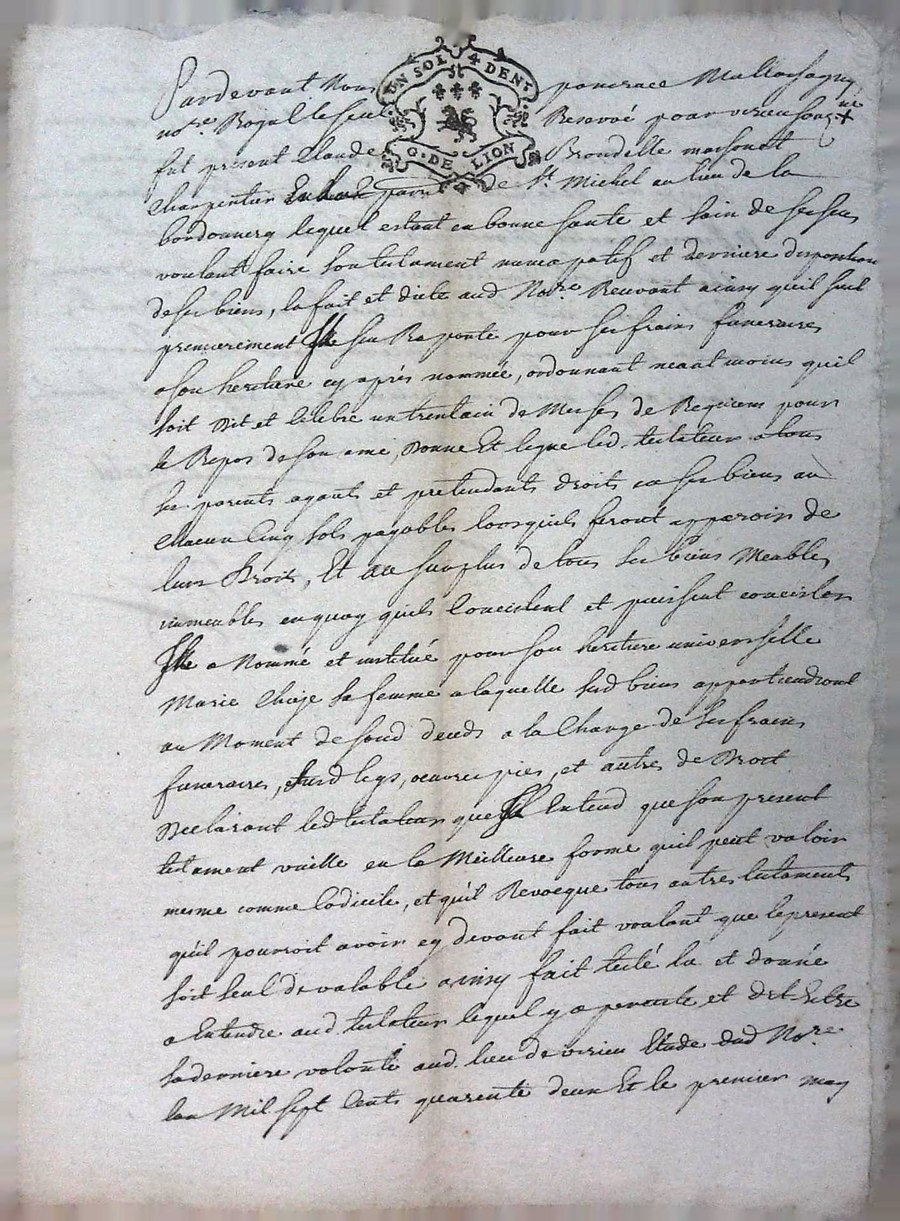 UN SOL 4 DEN.rs
G. DE LION
Pardevant Nous pancrace
no.re Royal Reservé pour virieu sous.né
fut present Claude Brondelle massonat
charpentier parr de S.t Michel au lieu de la
bordonnery lequel estant en bonne sante et sain de ses sens
voulant faire son testament nuncapatif et derniere disposition
de ses biens, la fait et dicte aud No.re Reuvant ainsy quil suit
premierement Ille sen Raporte pour ses frais funeraires
a son heritiere cy aprés nommée, ordonnant neantmoins quil
soit Dit et celebré un trentain de Messes de Requiem pour
le Repos de son ame, Donne Et legue led. testateur a tous
ses parents ayants et pretendants droits en ses biens au
chacun Cinq sols payables lorsquils feront apparoir de
leurs Droits, Et au surplus de tous ses biens Meubles
immeubles en quoy quils concistent et puissent concister
Ille a Nommé et institué pour son heritiere universelle
Marie Chaje sa femme a laquelle sesd biens appartiendront
au Moment de sond deceds a la Charge de ses frais
funeraires, susd legs, oeuvres pies, et autres de Droit
Declarant led testateur que Il Entend que son present
testament vaille en la Meilleure forme quil peut valoir
mesme comme Codicile, et qu'il Revocque tous autres testaments
qu'il pourroit avoir cy devant fait voulant que le present
soit seul de valable ainsy fait testé lu et donné
a Entendre aud testateur lequel y a persisté et dit Estre
sa derniere volonté aud. lieu de virieu Etude dud No.re
lan Mil sept Cents quarente deux Et le premier may